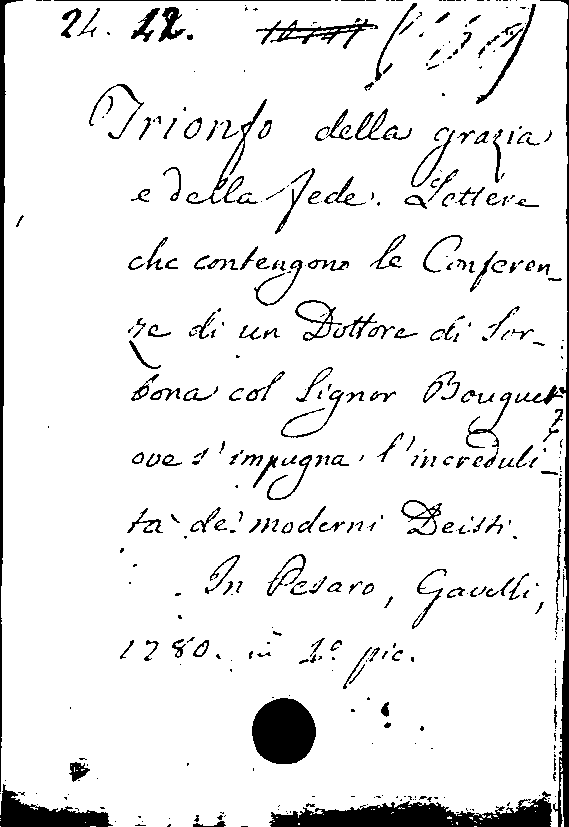 24. 22.
Trionfo della grazia
e della fede. Lettere
che contengono le Conferen-
ze di un Dottore di Sor-
bona col Signor Bouguer
ove s'impugna l'increduli-
tà de' moderni Deisti.
In Pesaro, Gavelli,
1780. in 4º pic.